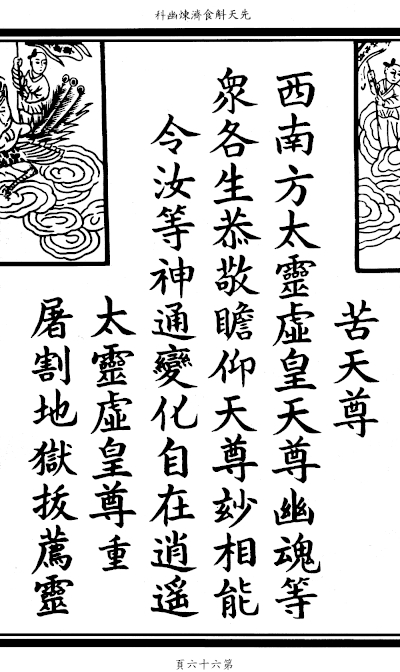 先天斛食濟煉幽科
苦天尊
西南方太靈虛皇天尊幽魂等
衆各生恭敬瞻仰天尊玅相能
令汝等神通變化自在逍遥
太靈虛皇尊重
屠割地獄拔薦靈
第六十六頁